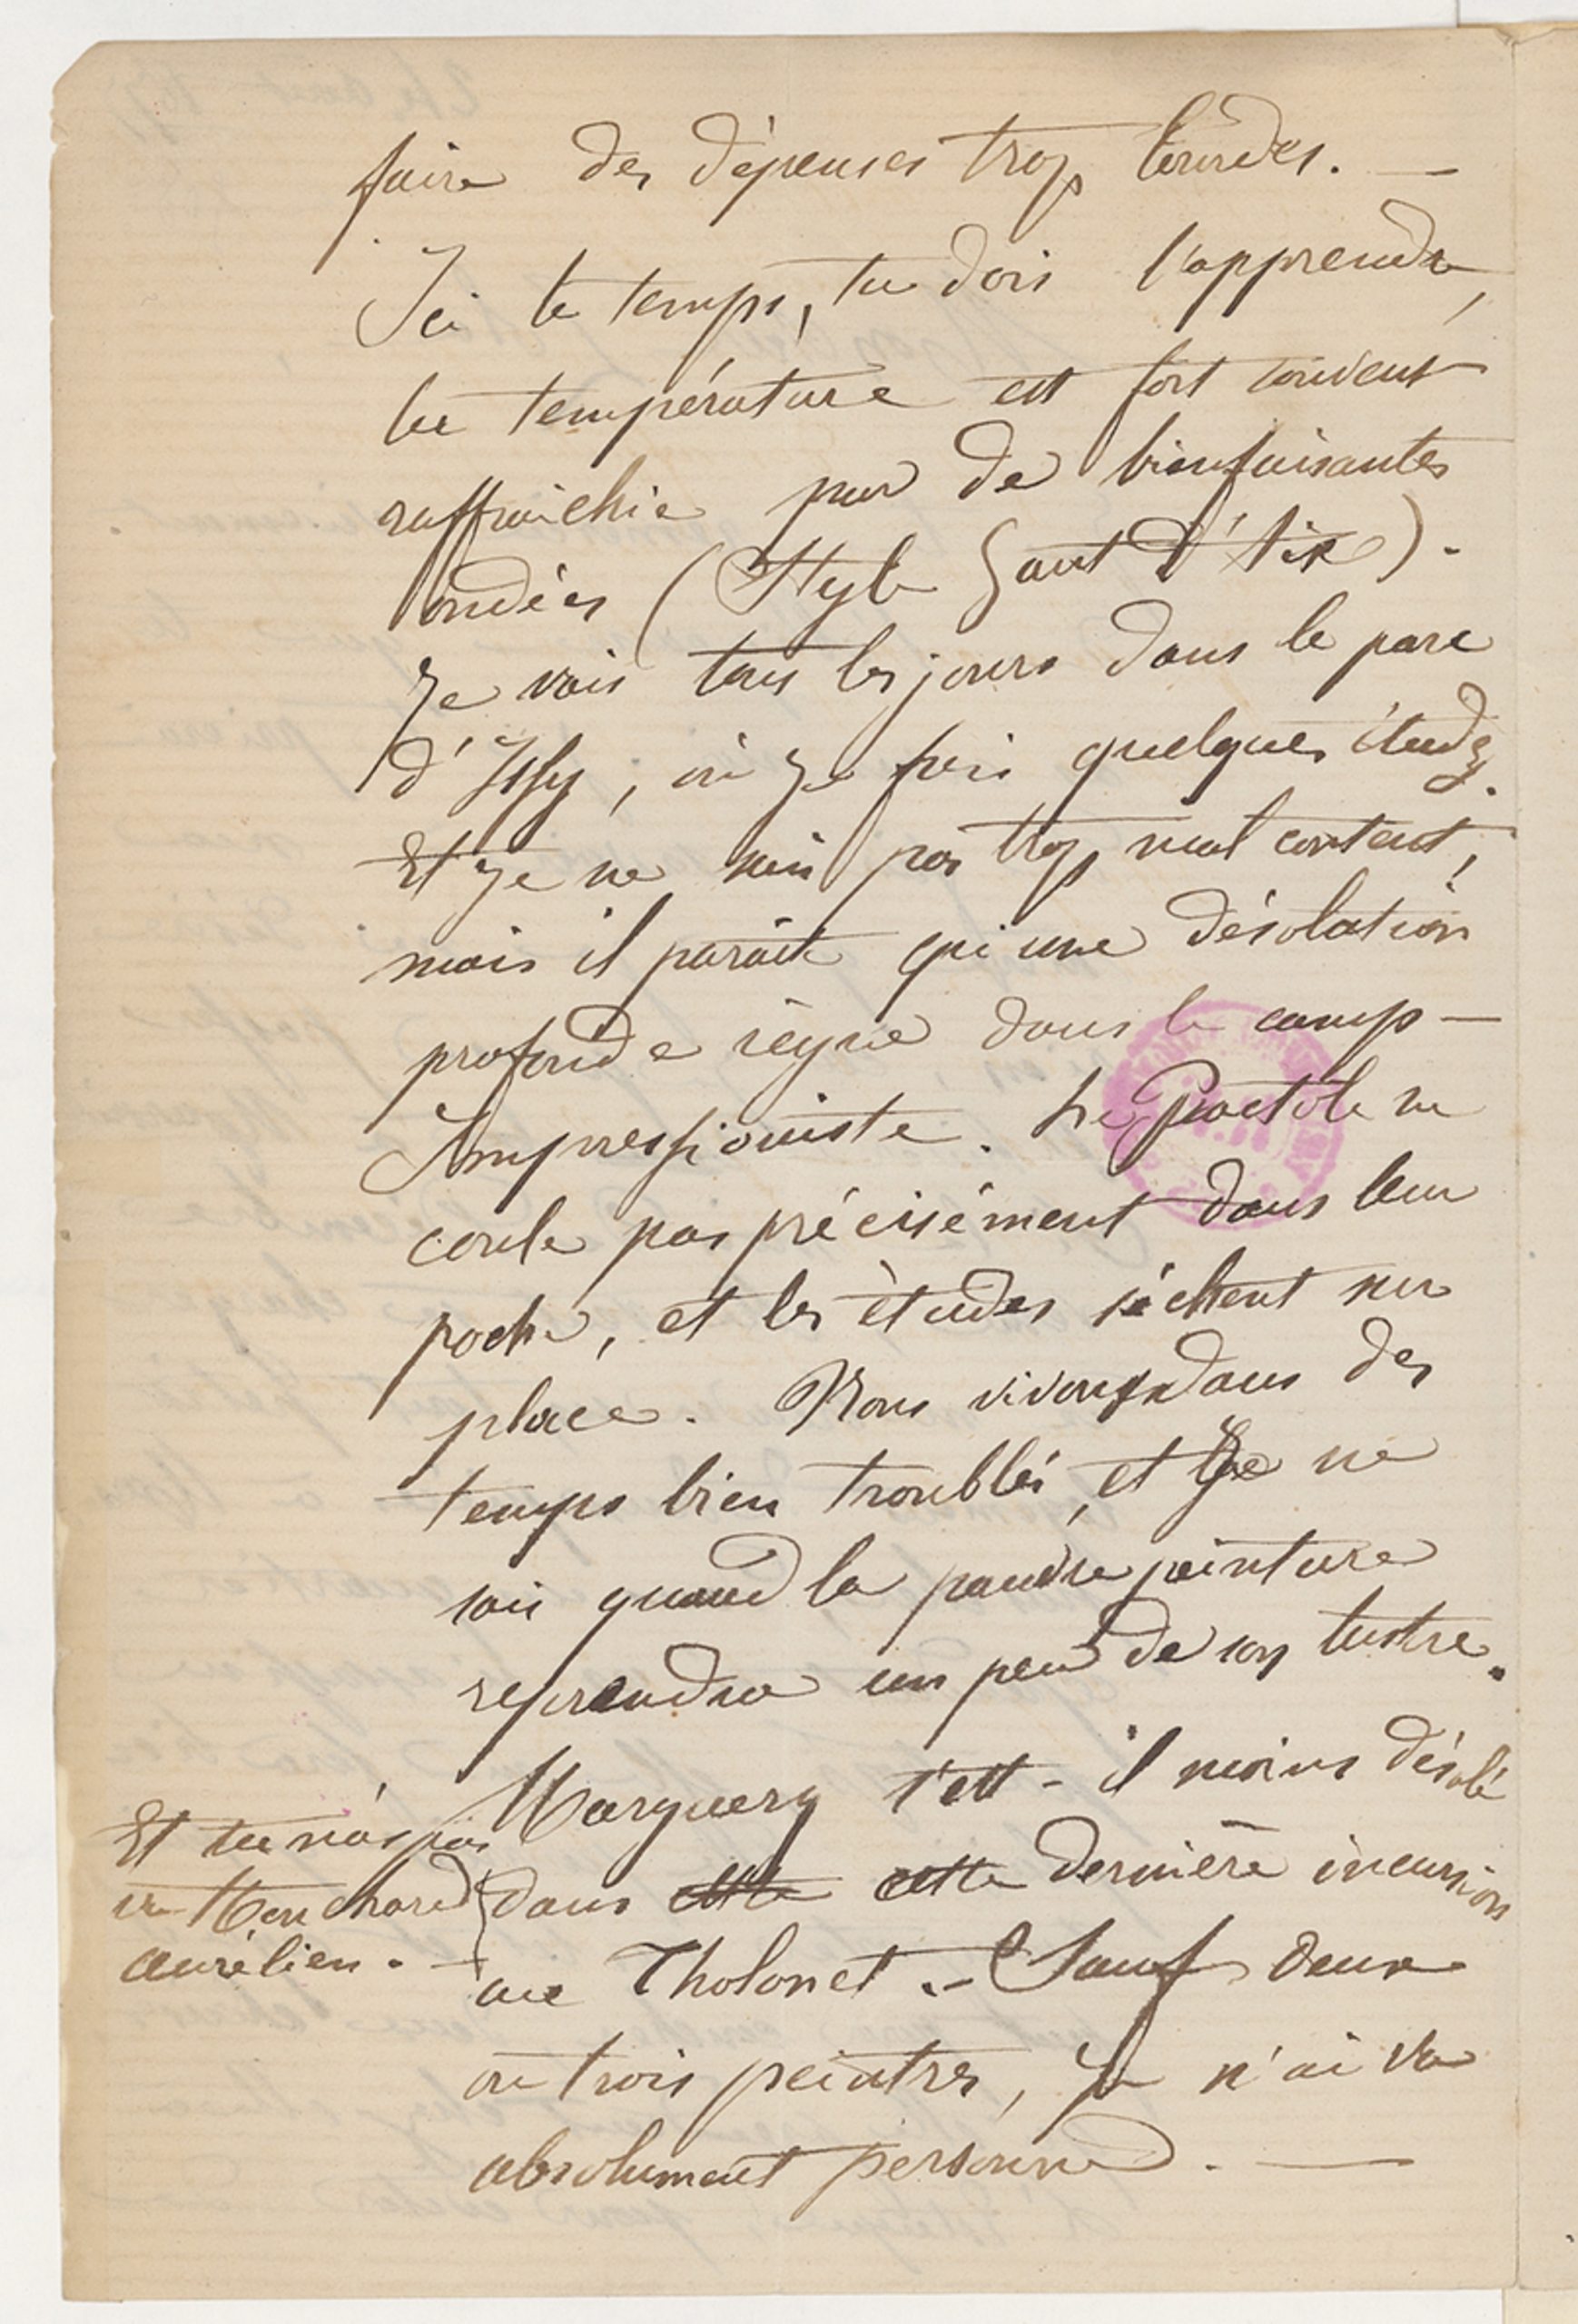 faire des dépenses trop lourdes. —
Ici le temps, tu dois l'apprendre,
la température est fort souvent
raffraichie par de bienfaisantes
ondées (Style Gaut d'Aix).
Je vais tous les jours dans le parc
d'Issy, où je fais quelques études.
Et je ne suis pas trop mal content,
mais il paraît qu'une désolation
profonde règne dans le camp —
Impressioniste. Le Pactole ne
coule pas précisément dans leur
poche, et les études sèchent sur
place. Nous vivons dans des
temps bien troublés, et je ne
sais quand la pauvre peinture
reprendra un peu de son lustre.
Marguery s'est-il moins désolé
dans cette cette dernière incursion
au Tholonet. — Sauf deux
ou trois peintres, je n'ai vu
absolument personne. —
Et tu n'as pas
vu Houchard
aurélien. —